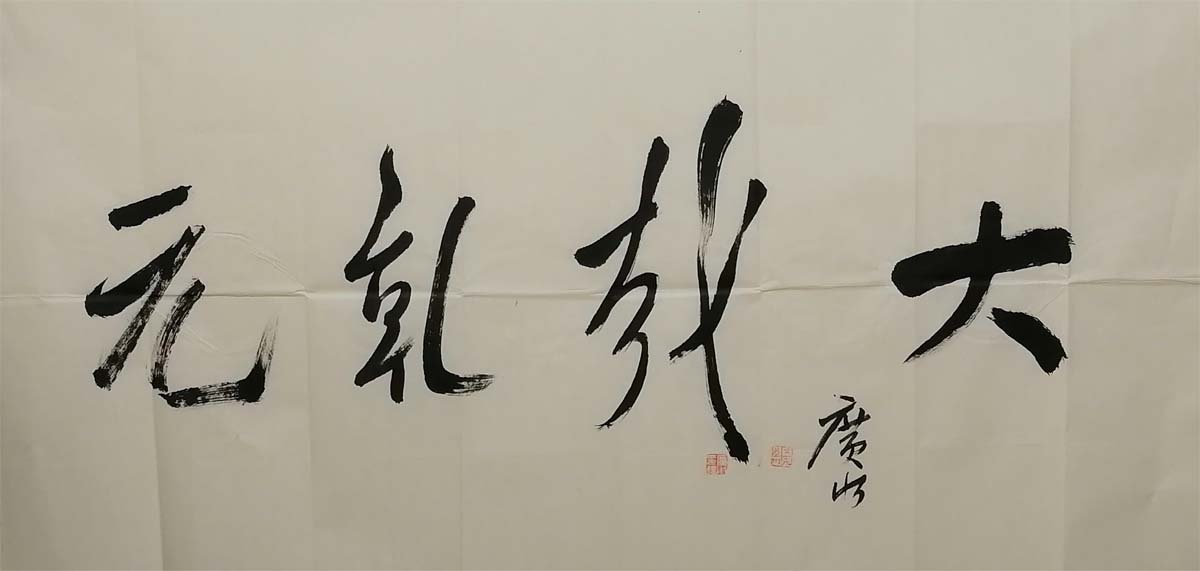 大哉乾元
廣